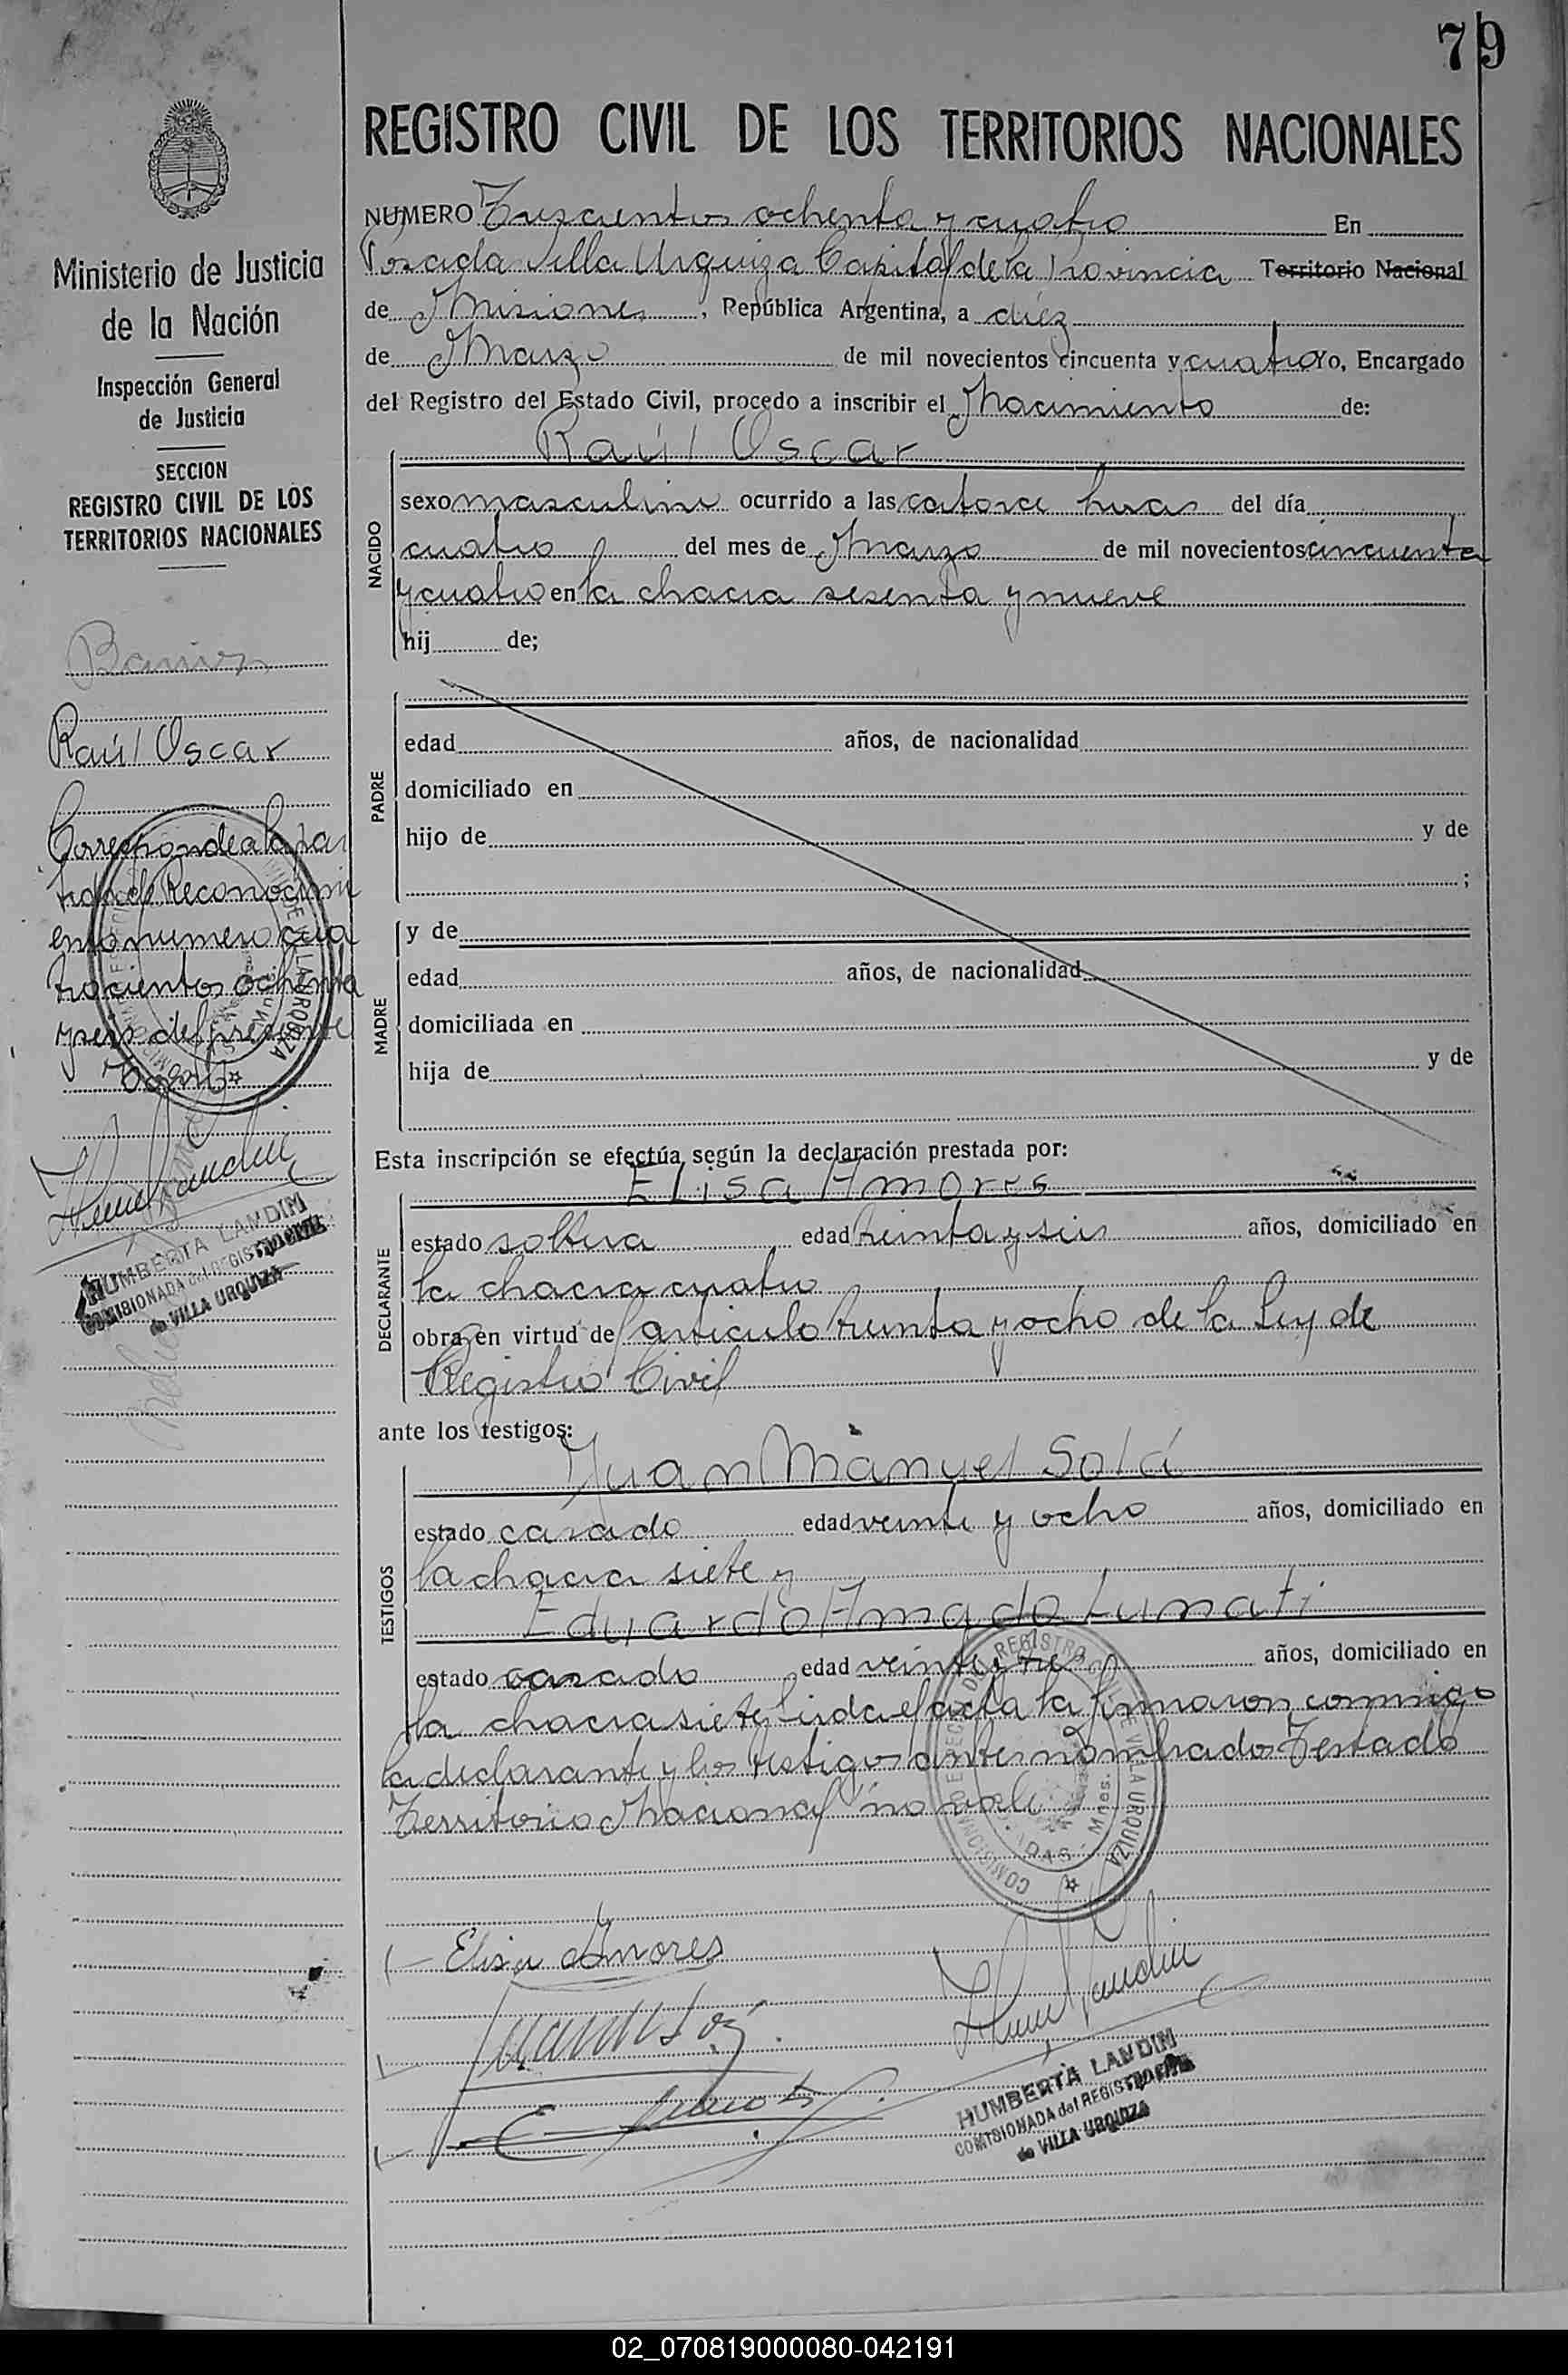 79
Ministerio de Justicia
de la Nación
Inspección General
de Justicia
SECCION
REGISTRO CIVIL DE LOS
TERRITORIOS NACIONALES
Raúl Oscar
Corresponde a la par
tida de Reconocimi
ento numero cua
trocientos ochenta
y seis del presente
HUMBERTA LANDIN
COMISIONADA del REGISTRO CIVIL
de VILLA URQUIZA
REGISTRO CIVIL DE LOS TERRITORIOS NACIONALES
NUMERO Trescientos ochenta y cuatro En
Posadas Villa Urquiza Capital de la Provincia Territorio Nacional
de Misiones, República Argentina, a diez
de Marzo de mil novecientos cincuenta y cuatro Yo, Encargado
del Registro del Estado Civil, procedo a inscribir el Nacimiento de:
Raúl Oscar
NACIDO
sexo masculino ocurrido a las catorce horas del día
cuatro del mes de Marzo de mil novecientos cincuenta
y cuatro en la chacra sesenta y nueve
hij de;
PADRE
edad años, de nacionalidad
domiciliado en
hijo de y de
;
MADRE
y de
edad años, de nacionalidad
domiciliada en
hija de y de
Esta inscripción se efectúa según la declaración prestada por:
Elisa Amores
DECLARANTE
estado soltera edad treinta y seis años, domiciliado en
la chacra cuatro
obra en virtud del articulo treinta y ocho de la Ley de
Registro Civil
ante los testigos:
Juan Manuel Solá
TESTIGOS
estado casado edad veinte y ocho años, domiciliado en
la chacra siete y
Eduardo Amado Lunati
estado casado edad veinte y tres años, domiciliado en
la chacra siete Leida el acta la firmaron conmigo
la declarante y los testigos antes nombrados Testado
Territorio Nacional "no vale
COMISIONADO DE SECC. DEL REGISTRO CIVIL DE VILLA URQUIZA
Elisa Amores
HUMBERTA LANDIN
COMISIONADA del REGISTRO CIVIL
de VILLA URQUIZA
02_070819000080-042191